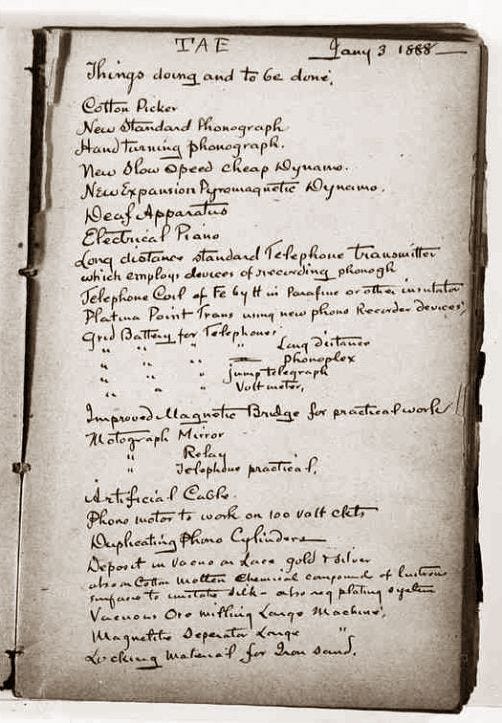 TAE Jany 3 1888
Things doing and to be done.
Cotton Picker
New Standard Phonograph
Hand turning phonograph.
New Slow Speed cheap Dynamo.
New Expansion Pyromagnetic Dynamo.
Deaf Apparatus
Electrical Piano
Long distance standard Telephone Transmitter
which employs devices of recording phonogh
Telephone Coil of Fe by H in Parafine or other insulator
Platina Point Trans using new phono Recorder devices.
Grid Battery for Telephones.
" " " " Long distance
" " " Phonoplex
" " " jump telegraph
" " " Voltmeter.
Improved Magnetic Bridge for practical work
Motograph Mirror
" Relay
" Telephone practical.
Artificial Cable.
Phono motor to work on 100 volt ckts
Duplicating Phono Cylinders
Deposit in vacuo on Lace, gold & silver
also on Cotton molten chemical compound of lustrous
surface to imitate silk - also reg plating system
Vacuous Ore milling Large Machine.
Magnetic Seperator Large "
Locking material for Iron sand.